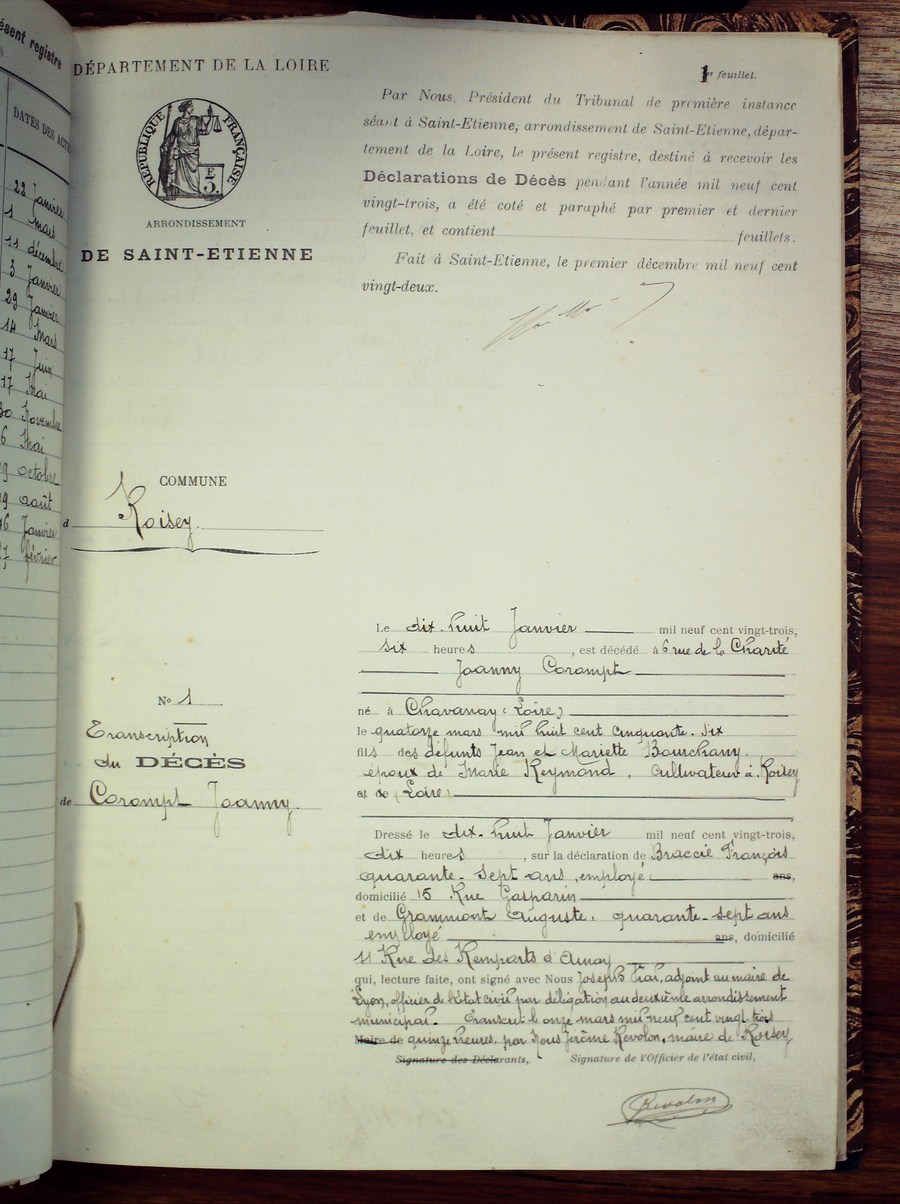 ésent registre
DATES DES ACTE
22 Janvier
1 mars
11 décembre
3 Janvier
29 Janvier
14 Mars
17 Juin
17 Mai
30 Novembre
6 Mai
19 octobre
19 août
16 Janvier
27 février
DÉPARTEMENT DE LA LOIRE
RÉPUBLIQUE FRANÇAISE
E
3
ARRONDISSEMENT
DE SAINT-ETIENNE
1er feuillet.
Par Nous, Président du Tribunal de première instance
séant à Saint-Etienne, arrondissement de Saint-Etienne, dépar-
tement de la Loire, le présent registre, destiné à recevoir les
Déclarations de Décès pendant l'année mil neuf cent
vingt-trois, a été coté et paraphé par premier et dernier
feuillet, et contient feuillets.
Fait à Saint-Etienne, le premier décembre mil neuf cent
vingt-deux.
COMMUNE
d Roisey.
No 1
Transcription
du DÉCÈS
de Corompt Joanny.
Le dix-huit Janvier mil neuf cent vingt-trois,
six heures, est décédé à 6 rue de la Charité
Joanny Corompt
né à Chavanay (Loire)
le quatorze mars mil huit cent cinquante-six
fils des défunts Jean et Mariette Bouchany.
époux de Marie Reymond, cultivateur à Roisey
et de (Loire)
Dressé le dix-huit Janvier mil neuf cent vingt-trois,
dix heures, sur la déclaration de Braccie François
quarante-sept ans, employé ans,
domicilié 15 Rue Gasparin
et de Grammont Auguste, quarante-sept ans
employé ans, domicilié
11 Rue des Remparts d'Ainay
qui, lecture faite, ont signé avec Nous Joseph adjoint au maire de
Lyon, officier de l'état civil par délégation au deuxième arrondissement
municipal. Transcrit le onze mars mil neuf cent vingt-trois
Maire de quinze heures, par Nous Jérôme Revolon, maire de Roisey
Signature des Déclarants, Signature de l'Officier de l'état civil,
Revolon